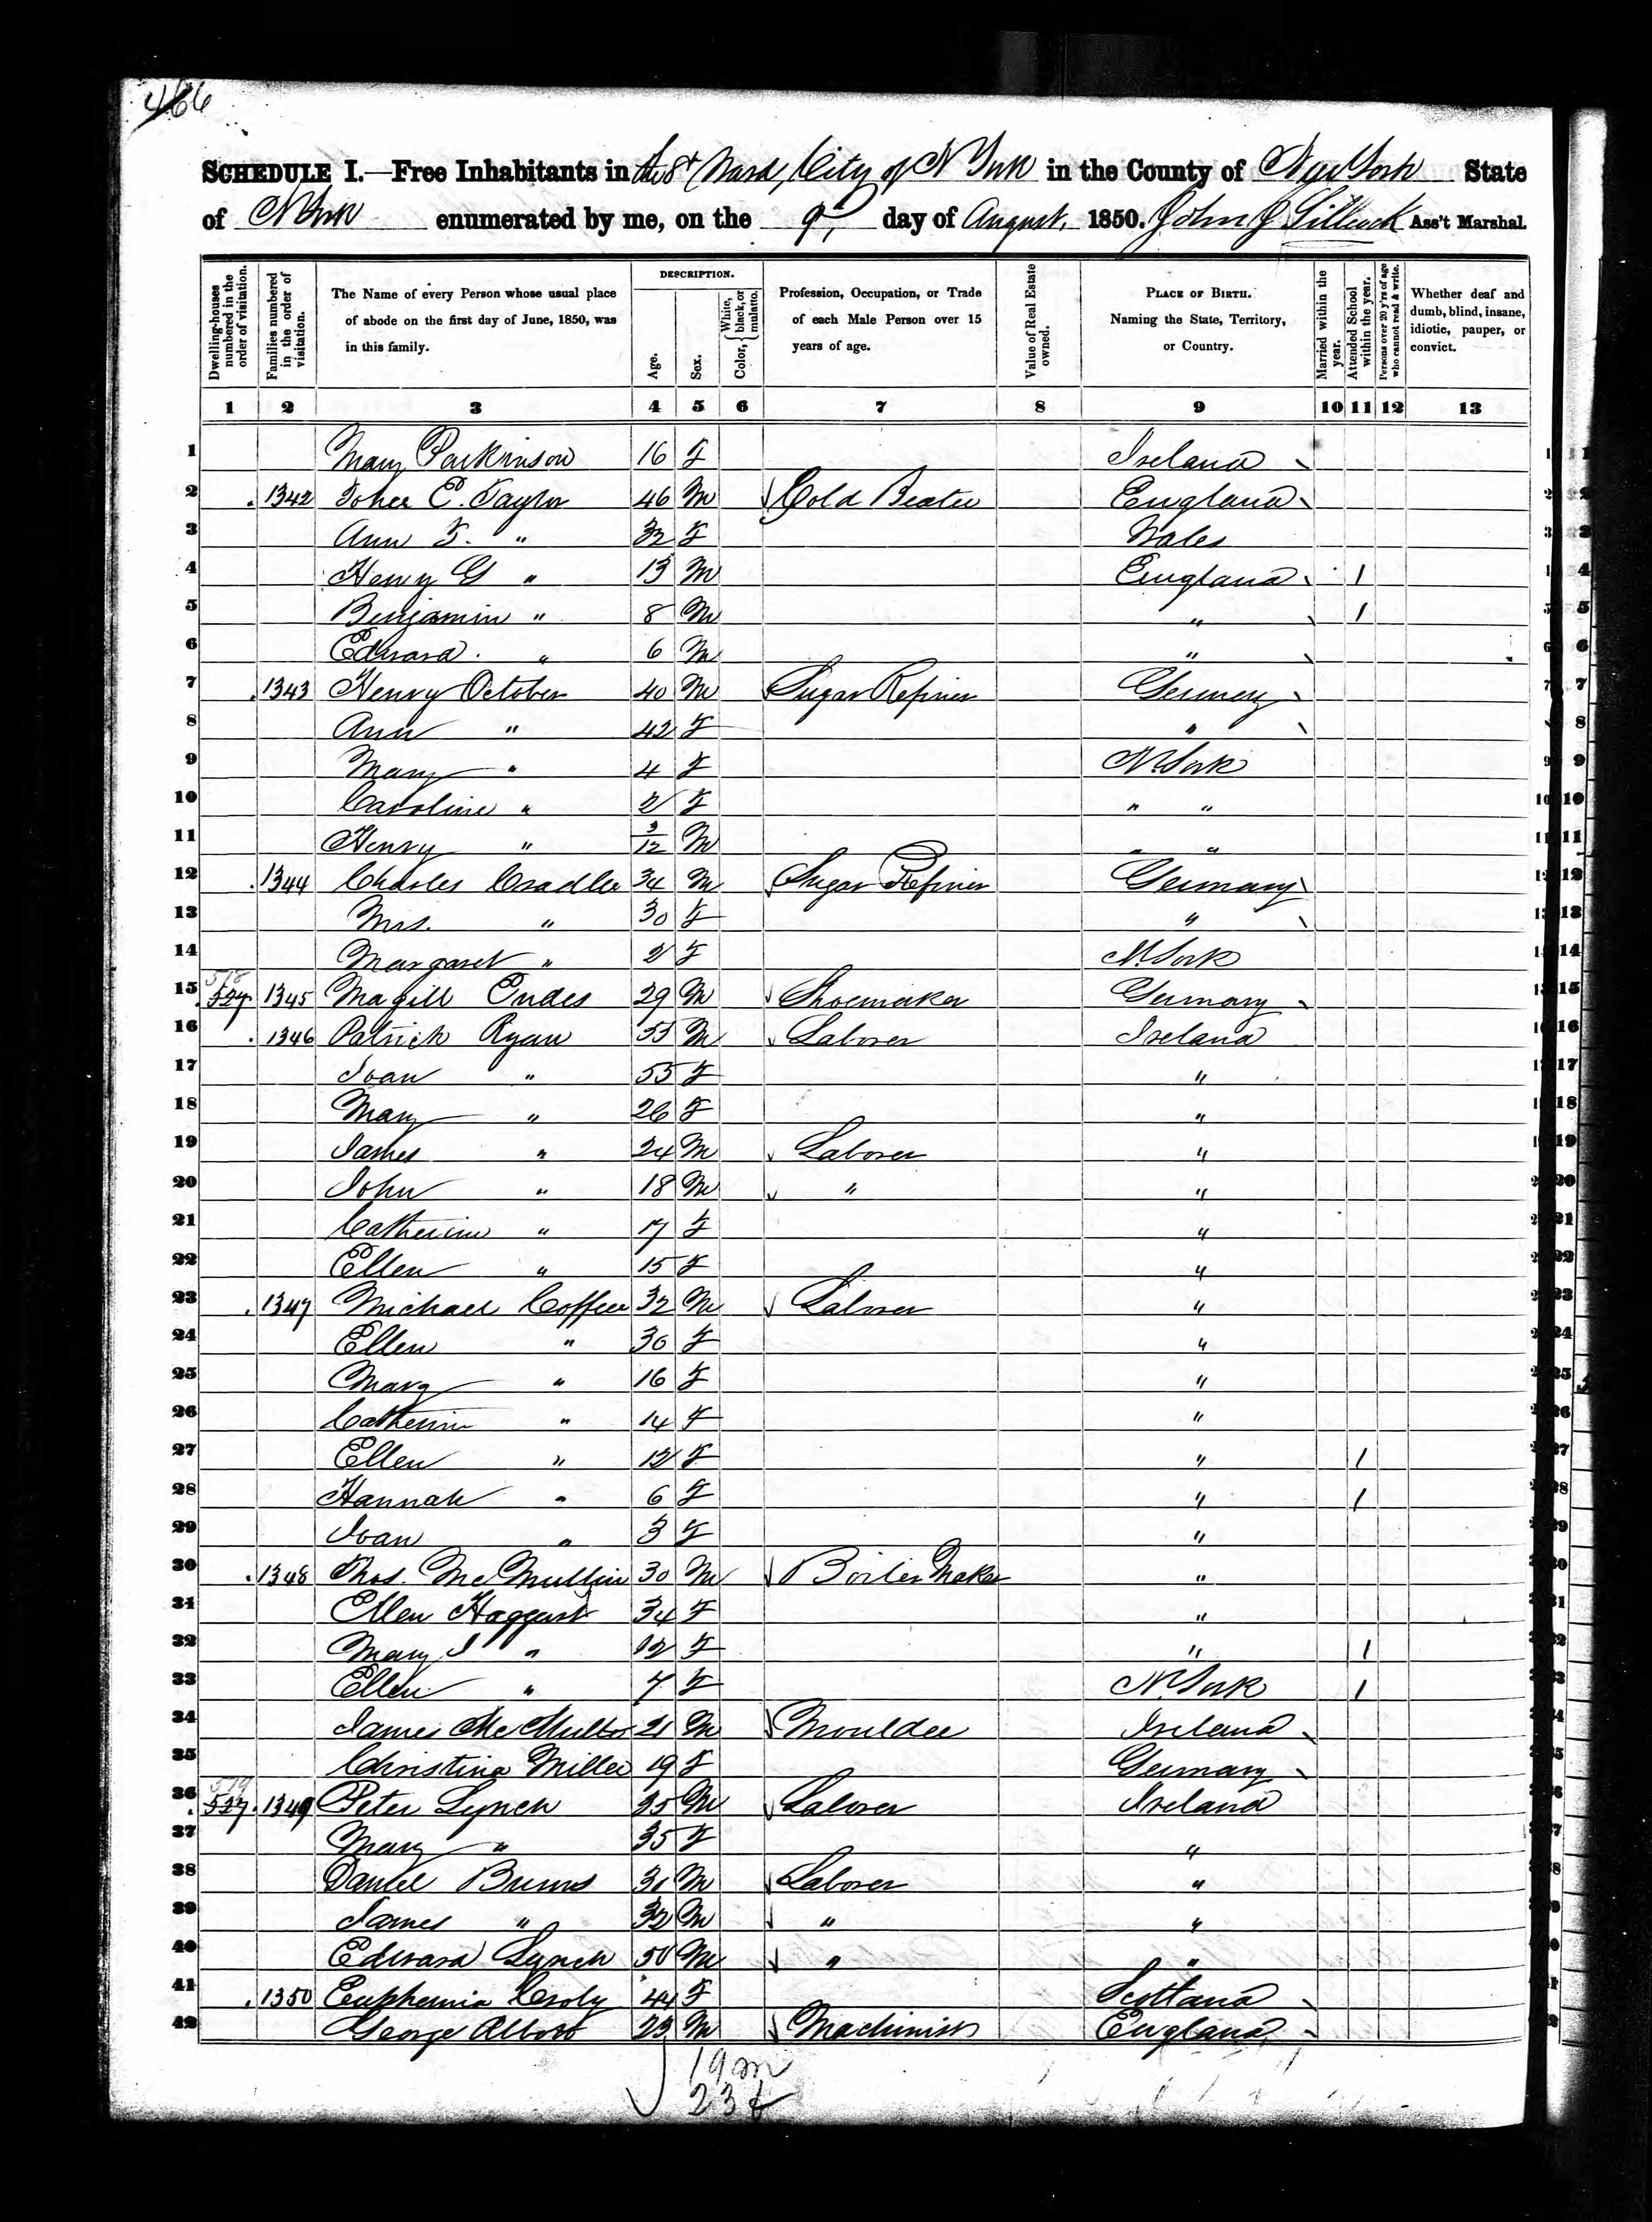 466
SCHEDULE I.—Free Inhabitants in the 8th Ward, City of N York in the County of New York State
of N York enumerated by me, on the 9th day of August, 1850. John J Sillcock Ass't Marshal.
Dwelling-houses numbered in the order of visitation.
Families numbered in the order of visitation.
The Name of every Person whose usual place of abode on the first day of June, 1850, was in this family.
DESCRIPTION.
Age.
Sex.
Color, { White, black, or mulatto.
Profession, Occupation, or Trade of each Male Person over 15 years of age.
Value of Real Estate owned.
PLACE OF BIRTH. Naming the State, Territory, or Country.
Married within the year.
Attended School within the year.
Persons over 20 y'rs of age who cannot read & write.
Whether deaf and dumb, blind, insane, idiotic, pauper, or convict.
1 2 3 4 5 6 7 8 9 10 11 12 13
1 Mary Parkinson 16 F Ireland 1
2 1342 John E. Taylor 46 M Gold Beater England 2
3 Ann F. " 32 F Wales 3
4 Henry G " 13 M England 1 4
5 Benjamin " 8 M " 1 5
6 Edward " 6 M " 6
7 1343 Henry October 40 M Sugar Refiner Germany 7
8 Ann " 42 F " 8
9 Mary " 4 F N. York 9
10 Caroline " 2 F " " 10
11 Henry " 3/12 M " " 11
12 1344 Charles Cradler 34 M Sugar Refiner Germany 12
13 Mrs. " 30 F " 13
14 Margaret " 2 F N. York 14
518
15 527 1345 Magill Endes 29 M Shoemaker Germany 15
16 1346 Patrick Ryan 55 M Laborer Ireland 16
17 Joan " 55 F " 17
18 Mary " 26 F " 18
19 James " 24 M Laborer " 19
20 John " 18 M " " 20
21 Catherine " 17 F " 21
22 Ellen " 15 F " 22
23 1347 Michael Coffee 32 M Laborer " 23
24 Ellen " 30 F " 24
25 Mary " 16 F " 25
26 Catherin " 14 F " 26
27 Ellen " 12 F " 1 27
28 Hannah " 6 F " 1 28
29 Joan " 3 F " 29
30 1348 Thos. McMullin 30 M Boiler Maker " 30
31 Ellen Haggart 34 F " 31
32 Mary J " 12 F " 1 32
33 Ellen " 7 F N. York 1 33
34 James McMullin 21 M Moulder Ireland 34
35 Christina Miller 19 F Germany 35
519
36 527 1349 Peter Lynch 35 M Laborer Ireland 36
37 Mary " 35 F " 37
38 Daniel Burns 30 M Laborer " 38
39 James " 32 M " " 39
40 Edward Lynch 50 M " " 40
41 1350 Euphemia Croly 44 F Scotland 41
42 George Abbott 23 M Machinist England 42
19 m
23 f